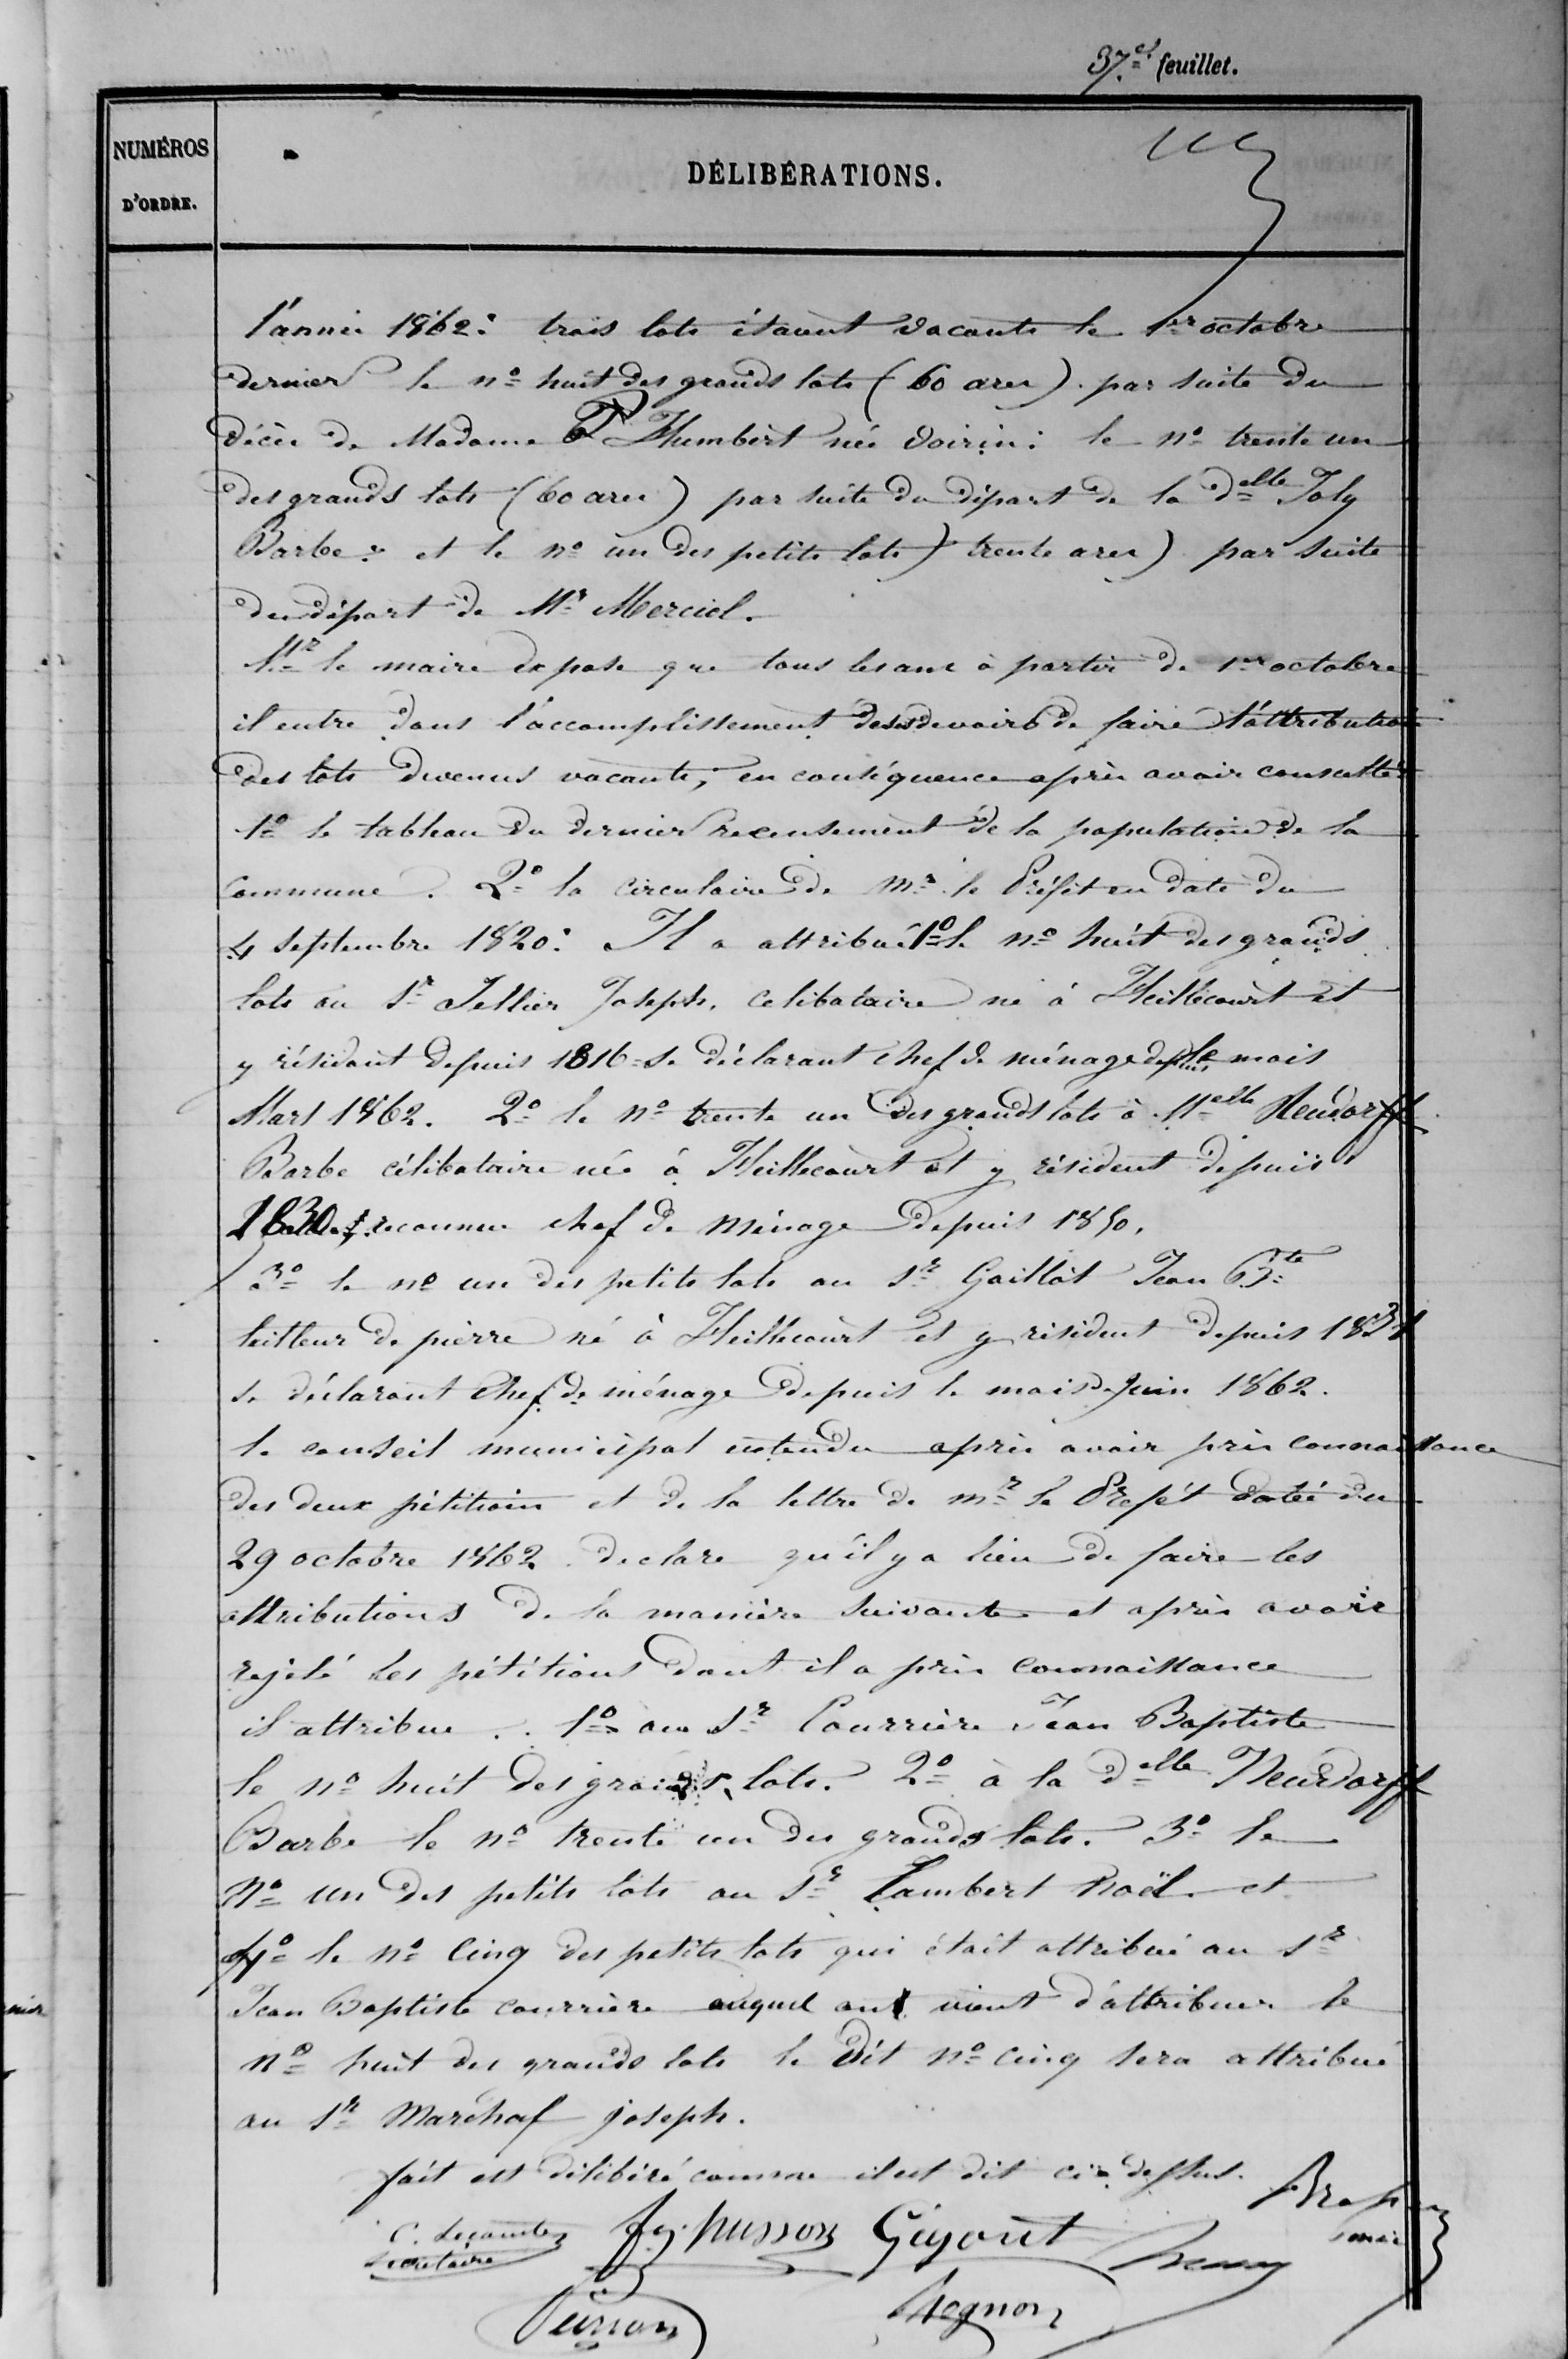 37.e feuillet.
NUMÉROS
D'ORDRE.
DÉLIBÉRATIONS.
l'année 1862: trois lots étaient vacants le 1er octobre
dernier le no huit des grands lots (60 ares). par suite du
décès de Madame Humbert née Voirin: le no trente un
des grands lots (60 ares) par suite du départ de la delle Joly
Barbe: et le no un des petits lots) trente ares) par suite
du départ de Mr Merciel.
Mr le maire expose que tous les ans à partir de 1er octobre
il entre dans l'accomplissement de ses devoirs de faire l'attribution
des lots devenus vacants, en conséquence après avoir consulté:
1o le tableau du dernier recensement de la population de la
commune. 2o la circulaire de Mr le Préfet en date du
4 septembre 1820: Il a attribué 1o le no huit des grands
lots au Sr Tellier Joseph, celibataire né à Heillecourt et
y résidant depuis 1816 se déclarant chef de ménage depuis le mois
Mars 1862. 2o le no trente un des grands lots à Melle Neudorff
Barbe célibataire née à Heillecourt et y résident depuis
1830 reconnue chef de ménage depuis 1850.
3o le no un des petits lots au Sr Gaillot Jean Bte
tailleur de pierre né à Heillecourt et y résident depuis 1834
se déclarant chef de ménage depuis le mois de Juin 1862.
le conseil municipal entendu après avoir pris connaissance
des deux pétitions et de la lettre de mr le Prefét datée du
29 octobre 1862 declare qu'il y a lieu de faire les
attributions de la manière suivante et après avoir
rejeté les pétitions dont il a pris connaissance
il attribue .. 1o au Sr Courrière Jean Baptiste
le no huit des grands lots. 2o à la delle Neudorff
Barbe le no trente un des grands lots. 3o le
No un des petits lots au Sr Lambert Noël et
4o le no Cinq des petits lots qui était attribué au Sr
Jean Baptiste courrière auquel on vient d'attribuer le
no huit des grands lots le dit no cinq sera attribué
au Sr Marchal joseph.
fait et délibéré comme il est dit ci-dessus.
C. Lecomte husson Gégout
Secrétaire maire